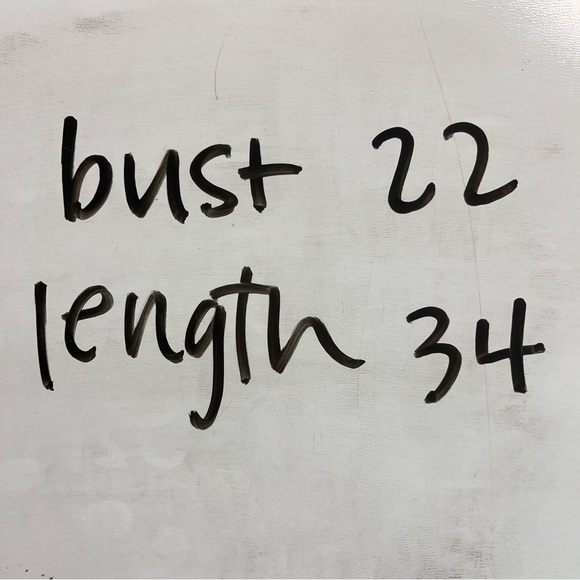 bust 22
length 34